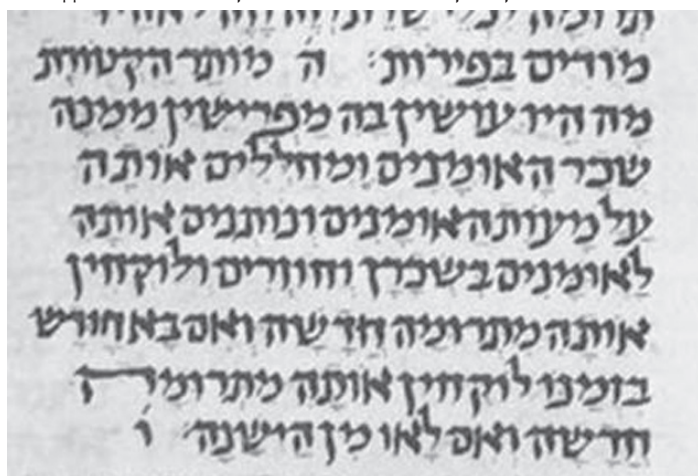 מודים בפירות: ה מותר הקטורת
מה היו עושין בה מפרישין ממנה
שכר האומנים ומחללים אותה
על מעות האומנים ונותנים אותה
לאומנים בשכרן וחוזרים ולוקחין
אותה מתרומה חדשה ואם בא חודש
בזמנו לוקחין אותה מתרומה
חדשה ואם לאו מן הישנה ו